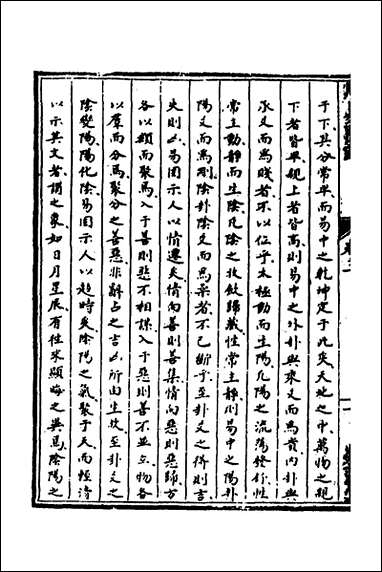 于下其分常卑而易中之乾坤定于此矣天地之中萬物之親
下者皆卑親上者皆高則易中之外卦與來爻而爲貴內卦與
承爻而爲賤者不以位乎太極動而生陽凡陽之流蕩發行性
常主動靜而生陰凡陰之收斂歸藏性常主靜則易中之陽卦
陽爻而爲剛陰卦陰爻而爲柔者不已斷乎至卦爻之得則吉
失則凶易固示人以情遷矣情向善則善集情向惡則惡歸方
各以類而聚焉入于善則惡不相謀入于惡則善不並立物各
以羣而分焉聚分之善惡非辭占之吉凶所由生歟至卦爻之
陰變陽陽化陰易固示人以趨時矣陰陽之氣聚于天而輕清
以示其文者謂之象如日月星辰有往來顯晦之異焉陰陽之